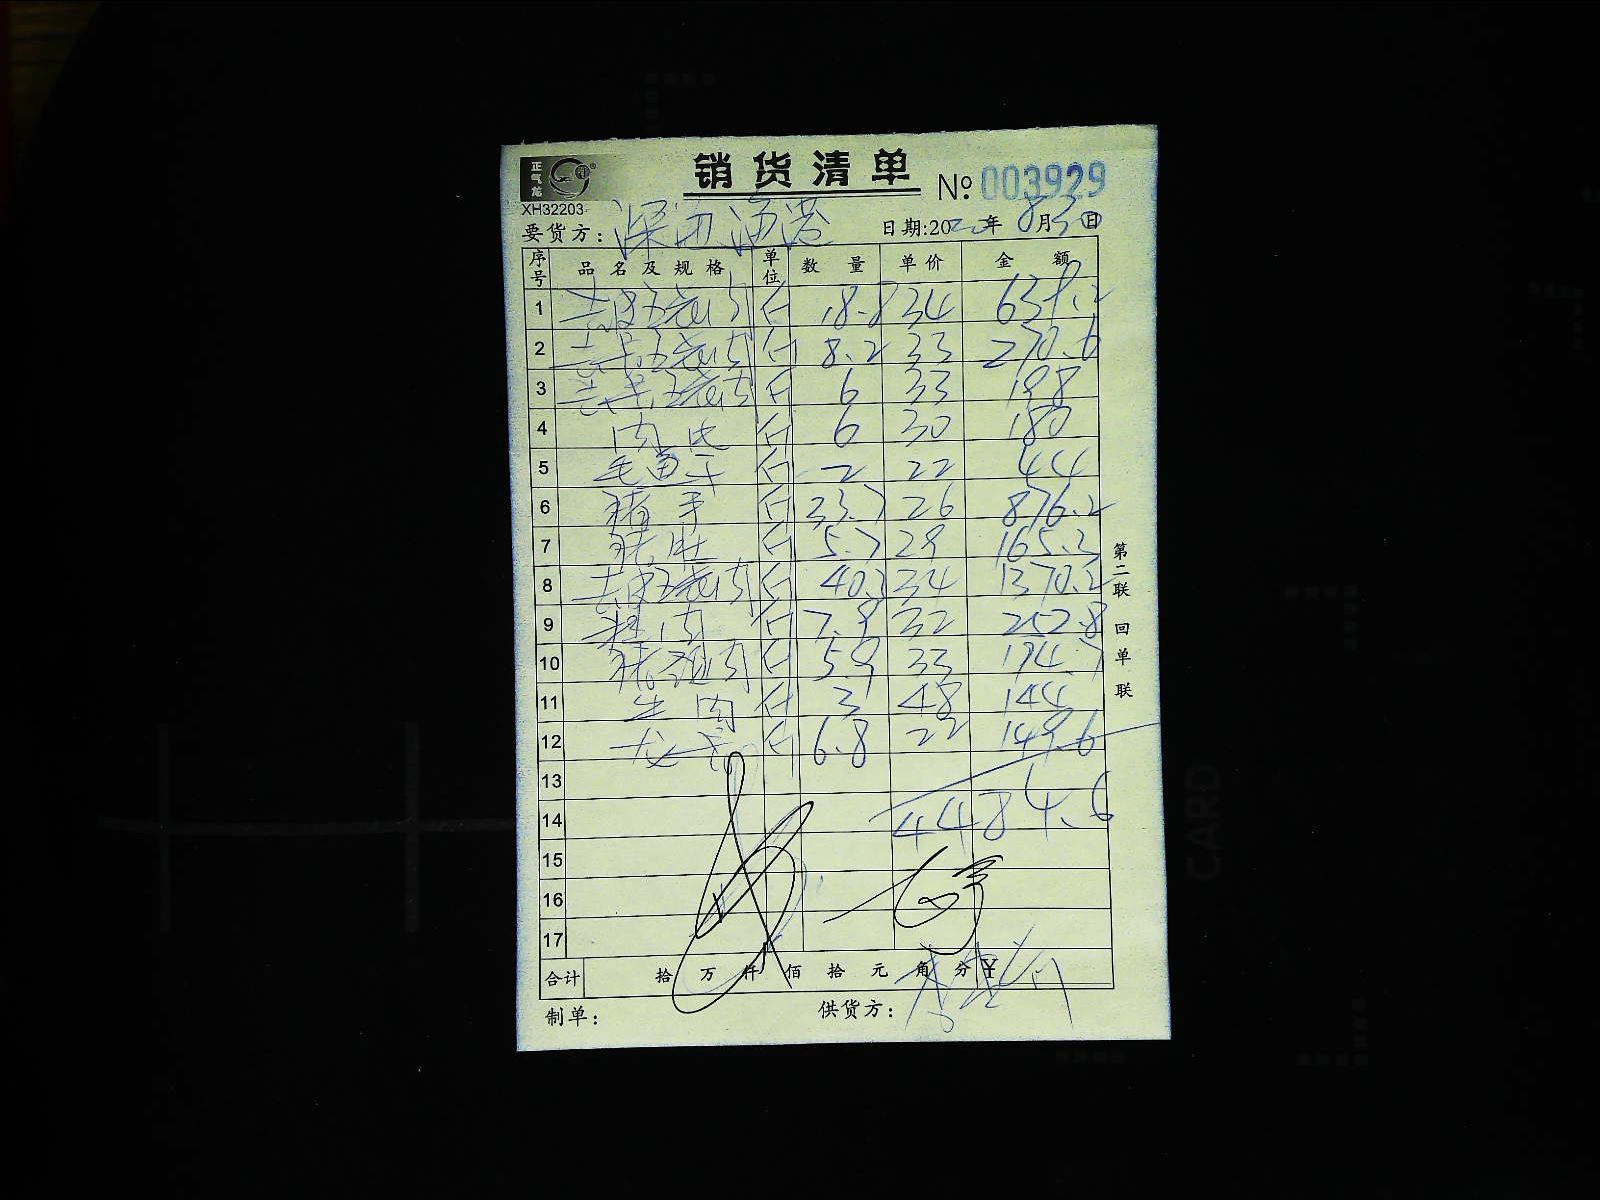 正气龙
XH32203
销货清单 № 003929
要货方: 深海渔港 日期:2020年8月30日
序号 品名及规格 单位 数量 单价 金额
1 去皮五花肉 斤 18.8 34 639.2
2 去骨五花肉 斤 8.2 33 270.6
3 去骨五花肉 斤 6 33 198
4 肉 斤 6 30 180
5 毛 斤 2 22 44
6 猪手 斤 33.7 26 876.2
7 猪肚 斤 5.7 29 165.3
8 去皮五花肉 斤 40.3 34 1370.2
9 精肉 斤 7.9 32 252.8
10 猪颈肉 斤 5.9 33 194.7
11 牛肉 斤 3 48 144
12 龙骨 斤 6.8 22 149.6
13
14 4484.6
15
16
17
合计 拾万仟佰拾元角分¥
制单: 供货方:
第二联 回单联
CARD